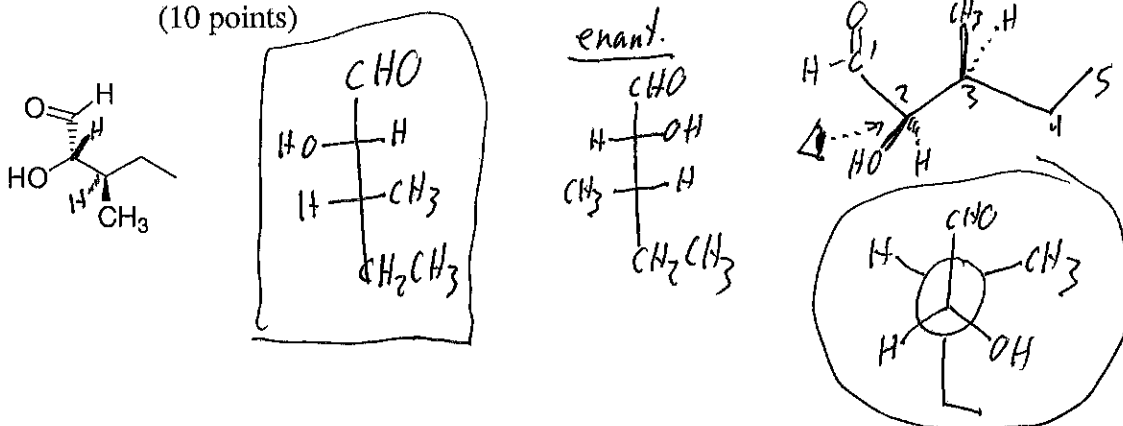 (10 points)
O
H
H
HO
H
CH₃
CHO
HO H
H CH₃
CH₂CH₃
enant.
CHO
H OH
CH₃ H
CH₂CH₃
O
CH₃ H
H-C 1
2
3
4
5
HO H
CHO
H CH₃
H OH